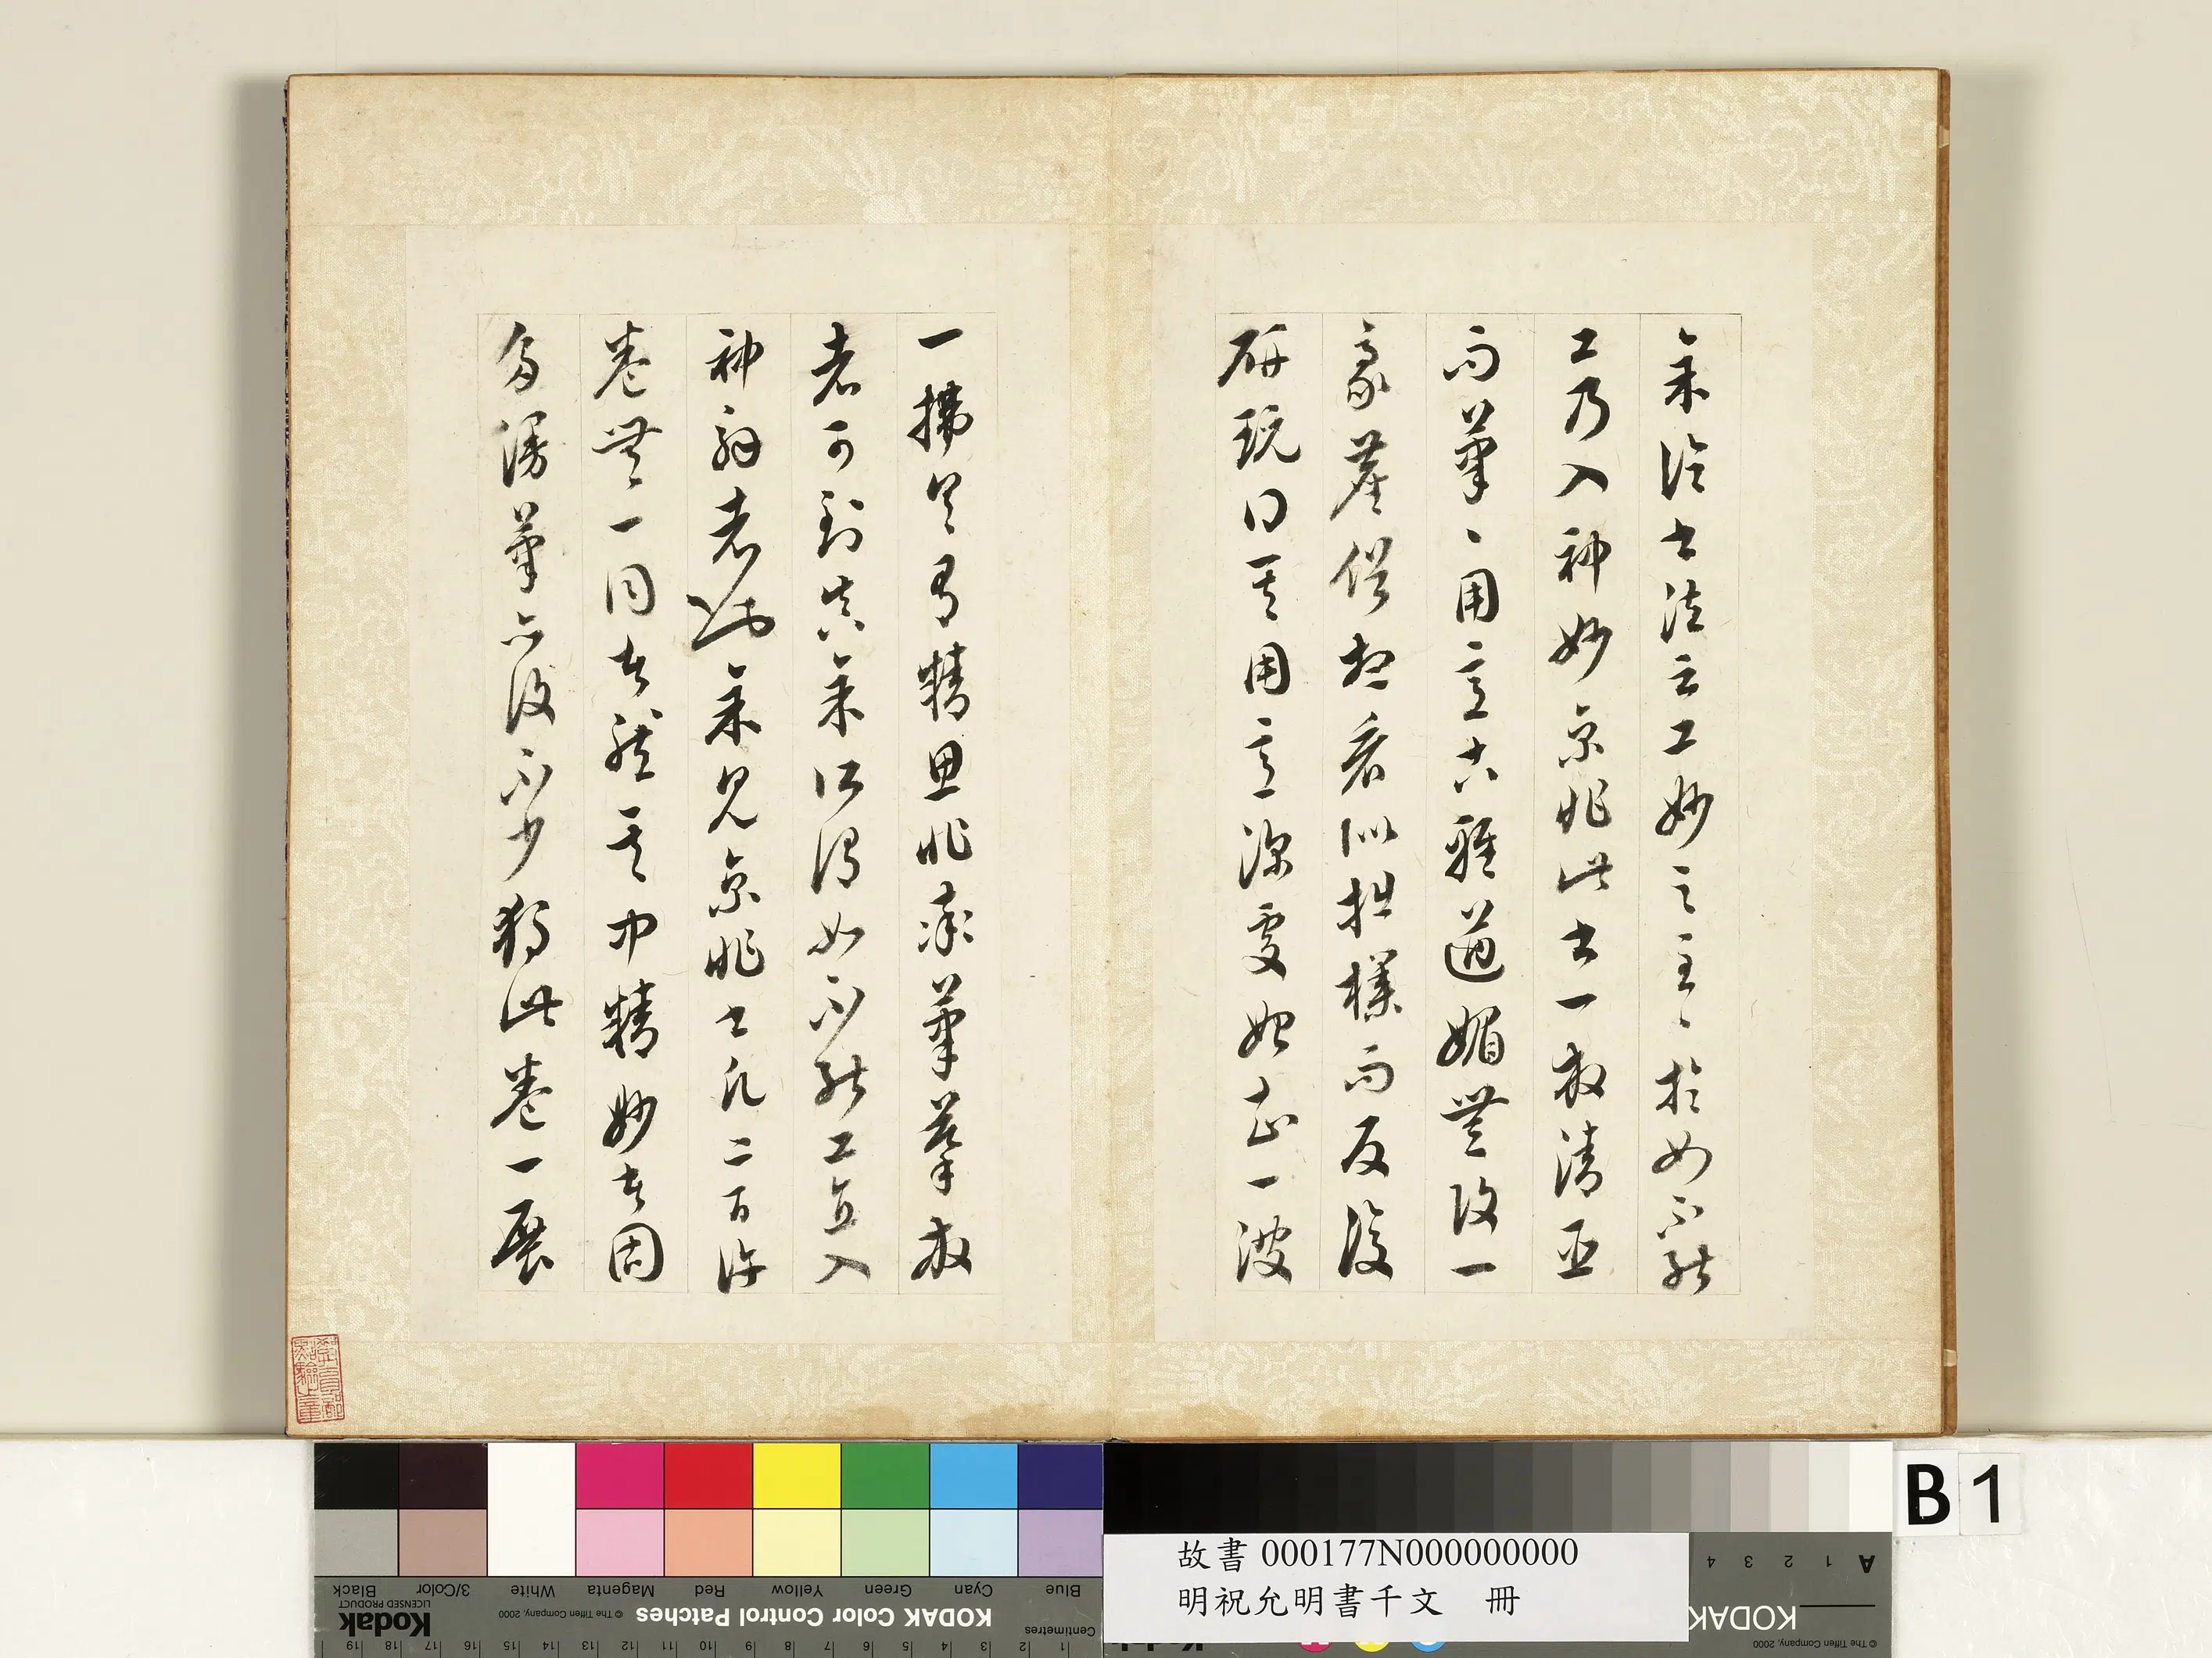 余論書法云工妙之至々於如不能
工乃入神妙京兆此書一教清亞
而筆々用意古雅遒媚無復一
豪塵俗想看似拙樸而反復
研玩曰其用意深處始知一波
一拂具有精思非率筆苟
者可到此余所謂如不能工直入
神解者也余見京兆書凡二百許
卷無一同者然其中精妙者固
多漫筆亦復不少獨此卷一展
故書000177N000000000
明祝允明書千文 冊
B1
Blue Cyan Green Yellow Red Magenta White 3/Color Black
KODAK Color Control Patches
© The Tiffen Company, 2000
Kodak
LICENSED PRODUCT
Centimetres
1 2 3 4 5 6 7 8 9 10 11 12 13 14 15 16 17 18 19
A 1 2 3 4
KODAK
© The Tiffen Company, 2000